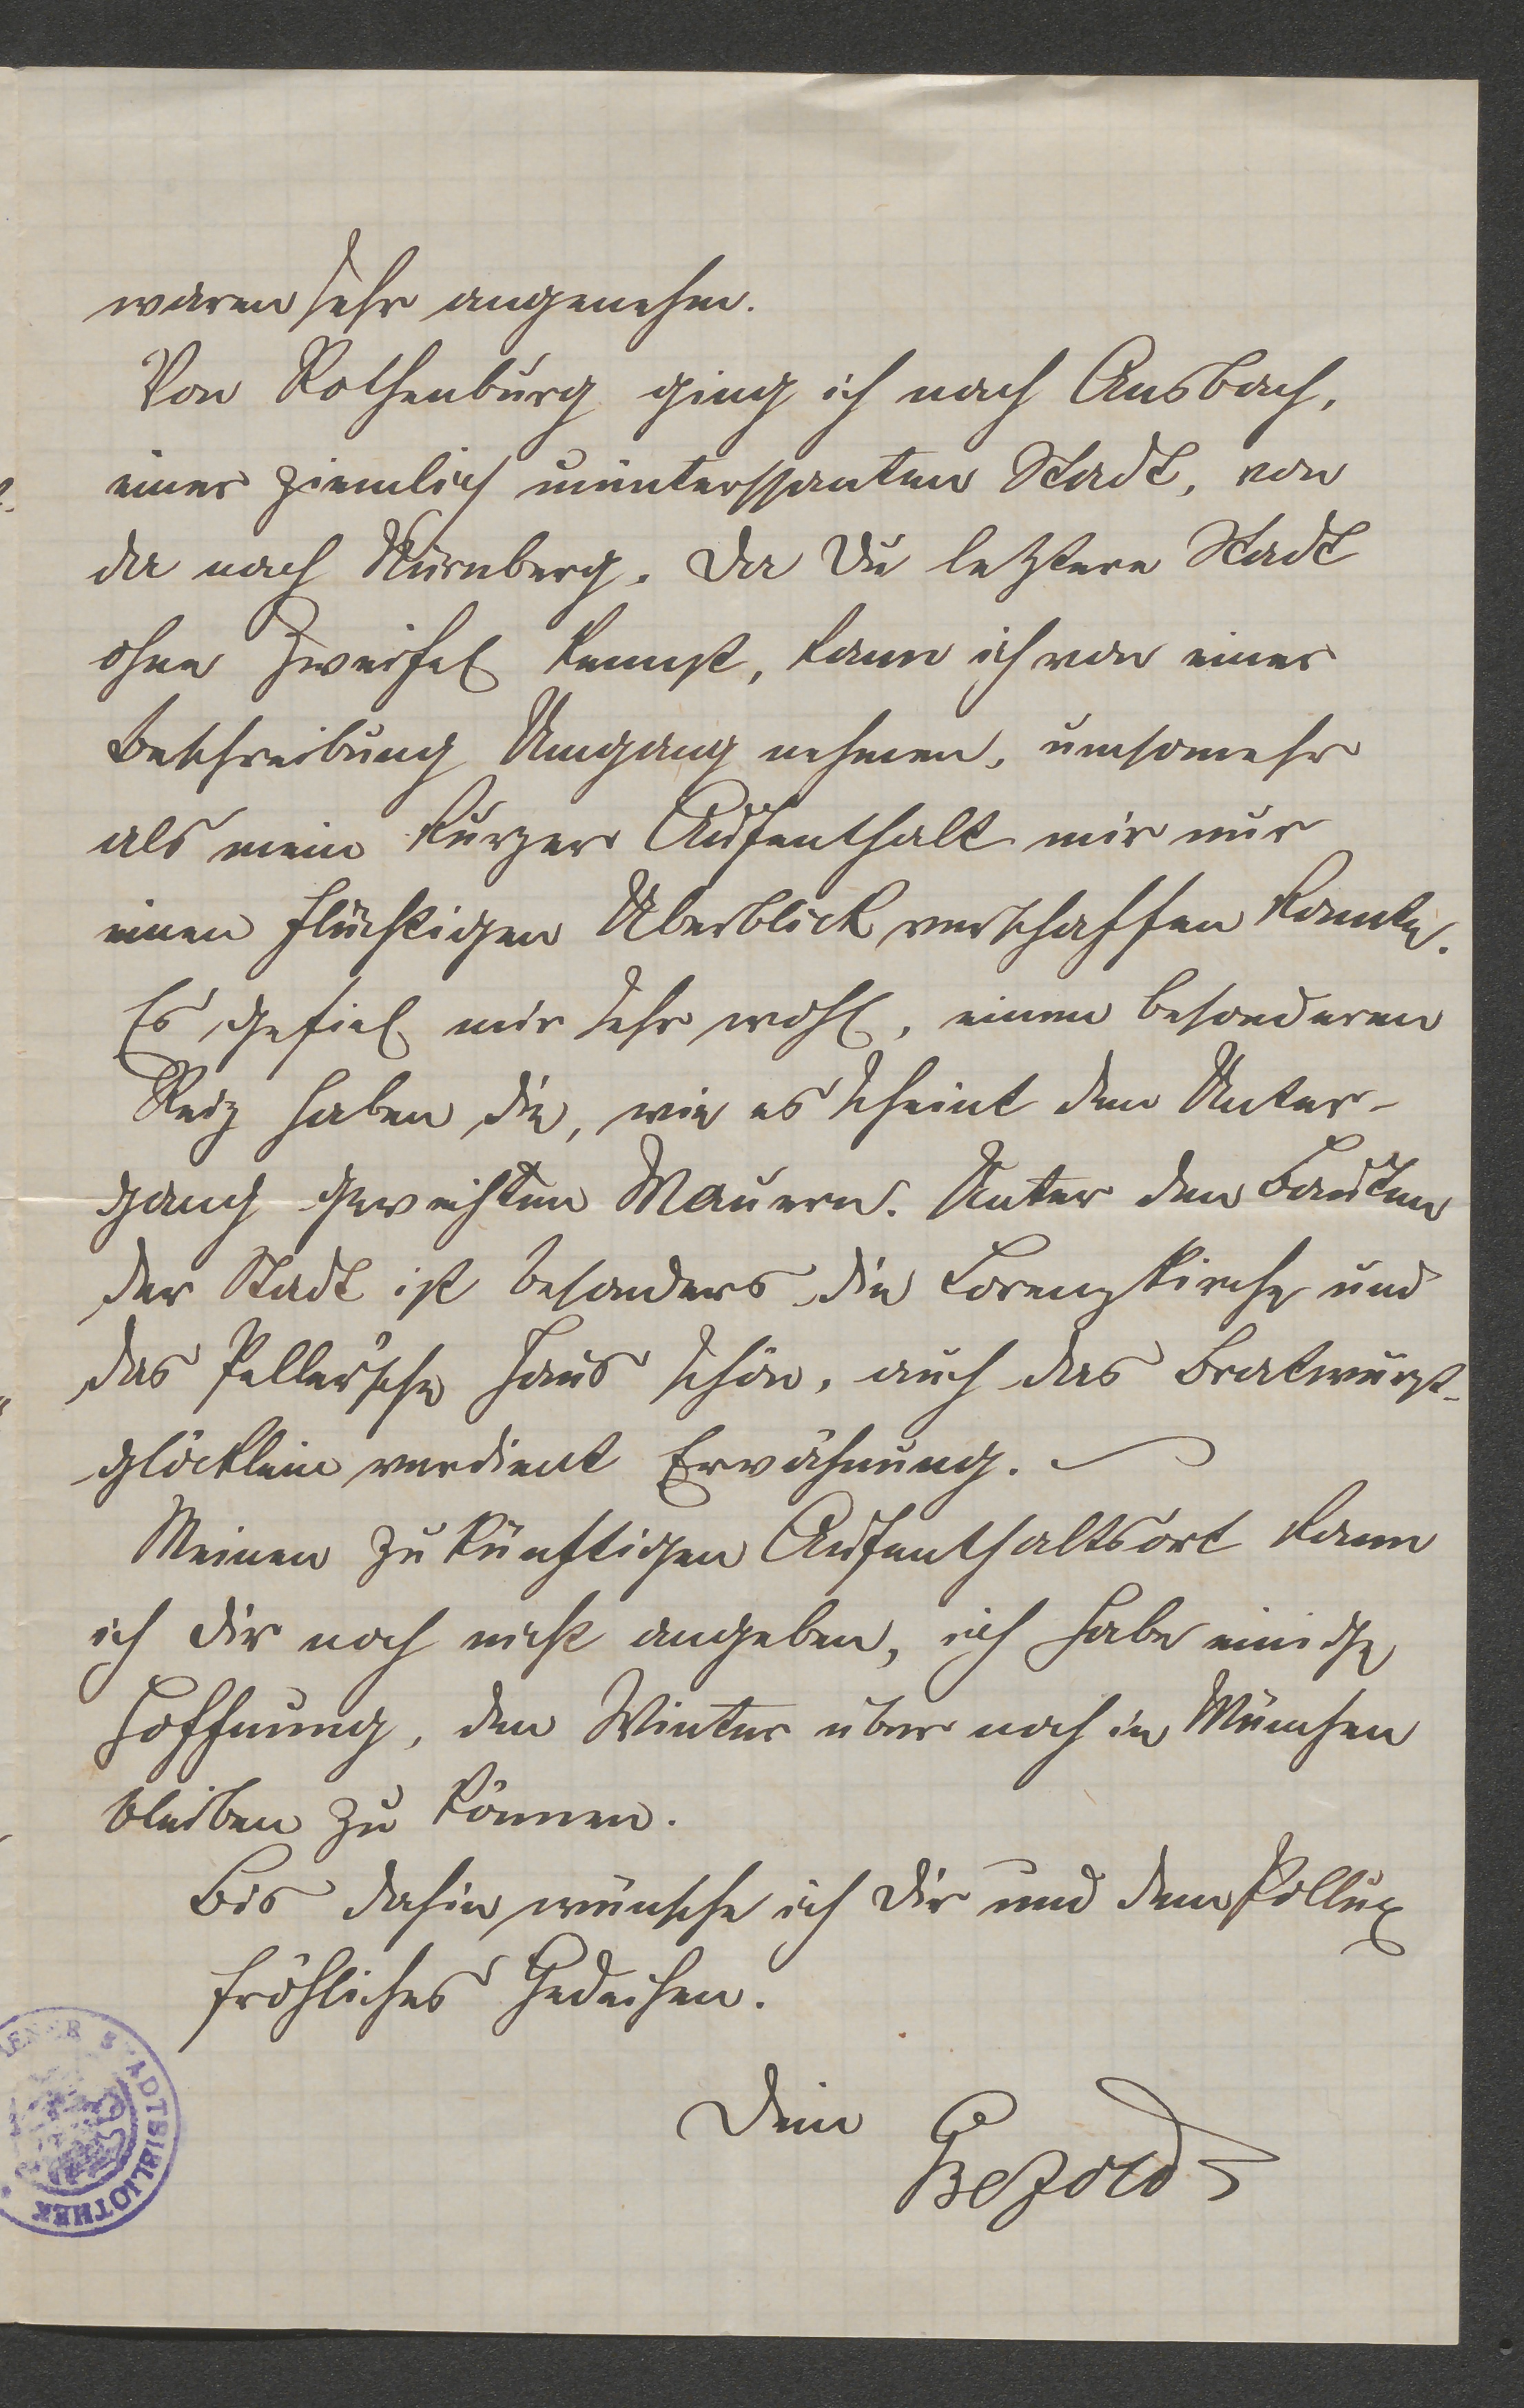 waren sehr angenehm.
Von Rothenburg ging ich nach Ansbach,
einer ziemlich uninterssanten Stadt, von
da nach Nürnberg. Da Du letztere Stadt
ohne Zweifel kennst, kann ich von einer
Beschreibung Umgang nehmen, umsomehr
als mein kurzer Aufenthalt mir nur
einen flüchtigen Überblick verschaffen konnte.
Es gefiel mir sehr wohl, einen besonderen
Reiz haben die, wie es scheint dem Unter-
gang geweihten Mauern. Unter den Bauten
der Stadt ist besonders die Lorenzkirche und
das Peller'sche Haus schön, auch das Bratwurst-
glöcklein verdient Erwähnung.
Meinen zukünftigen Aufenthaltsort kann
ich Dir noch nicht angeben, ich habe einige
Hoffnung, den Winter über noch in München
bleiben zu können.
Bis dahin wünsche ich Dir und dem Pollux
fröhliches Gedeihen.
Dein Bezold
STADTBIBLIOTHEK